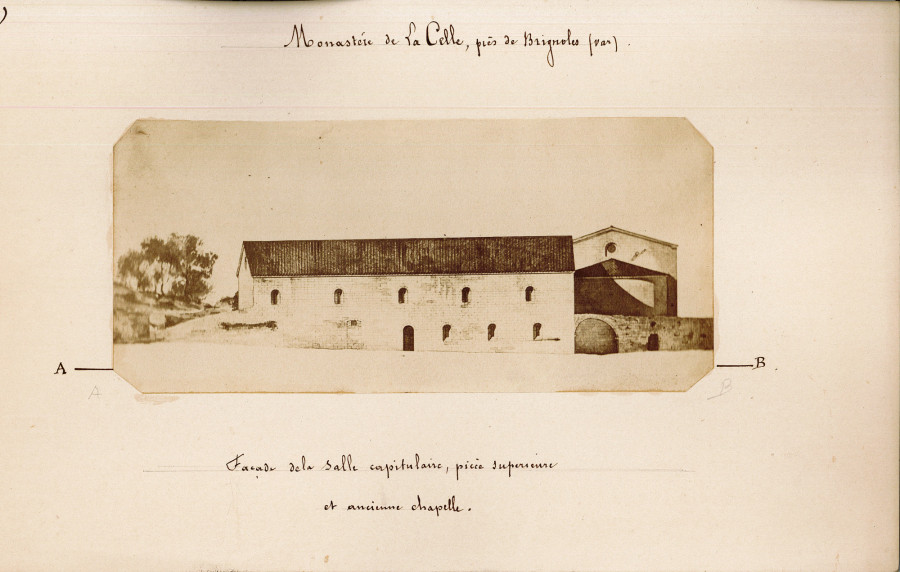 Monastére de La Celle, près de Brignoles (Var).
A
B
A
B
Façade de la Salle capitulaire, pièce superieure
et ancienne chapelle.